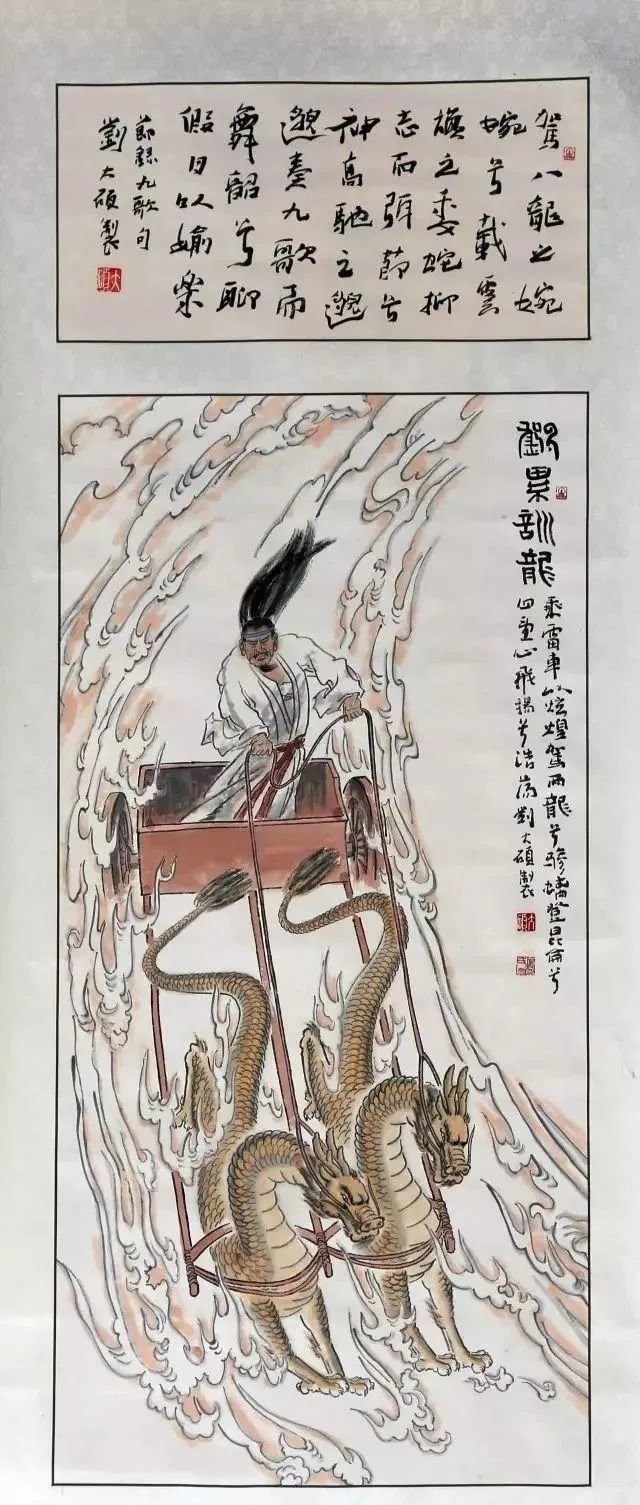 駕八龍之婉
婉兮載雲
旗之委蛇抑
志而弭節兮
神高馳之邈
邈奏九歌而
舞韶兮聊
假日以媮樂
節錄九歌句
劉大碩製
大碩
劉累訓龍
乘雷車以炫煌駕兩龍兮驂螭登昆侖兮
四望心飛揚兮浩蕩劉大碩製
大碩